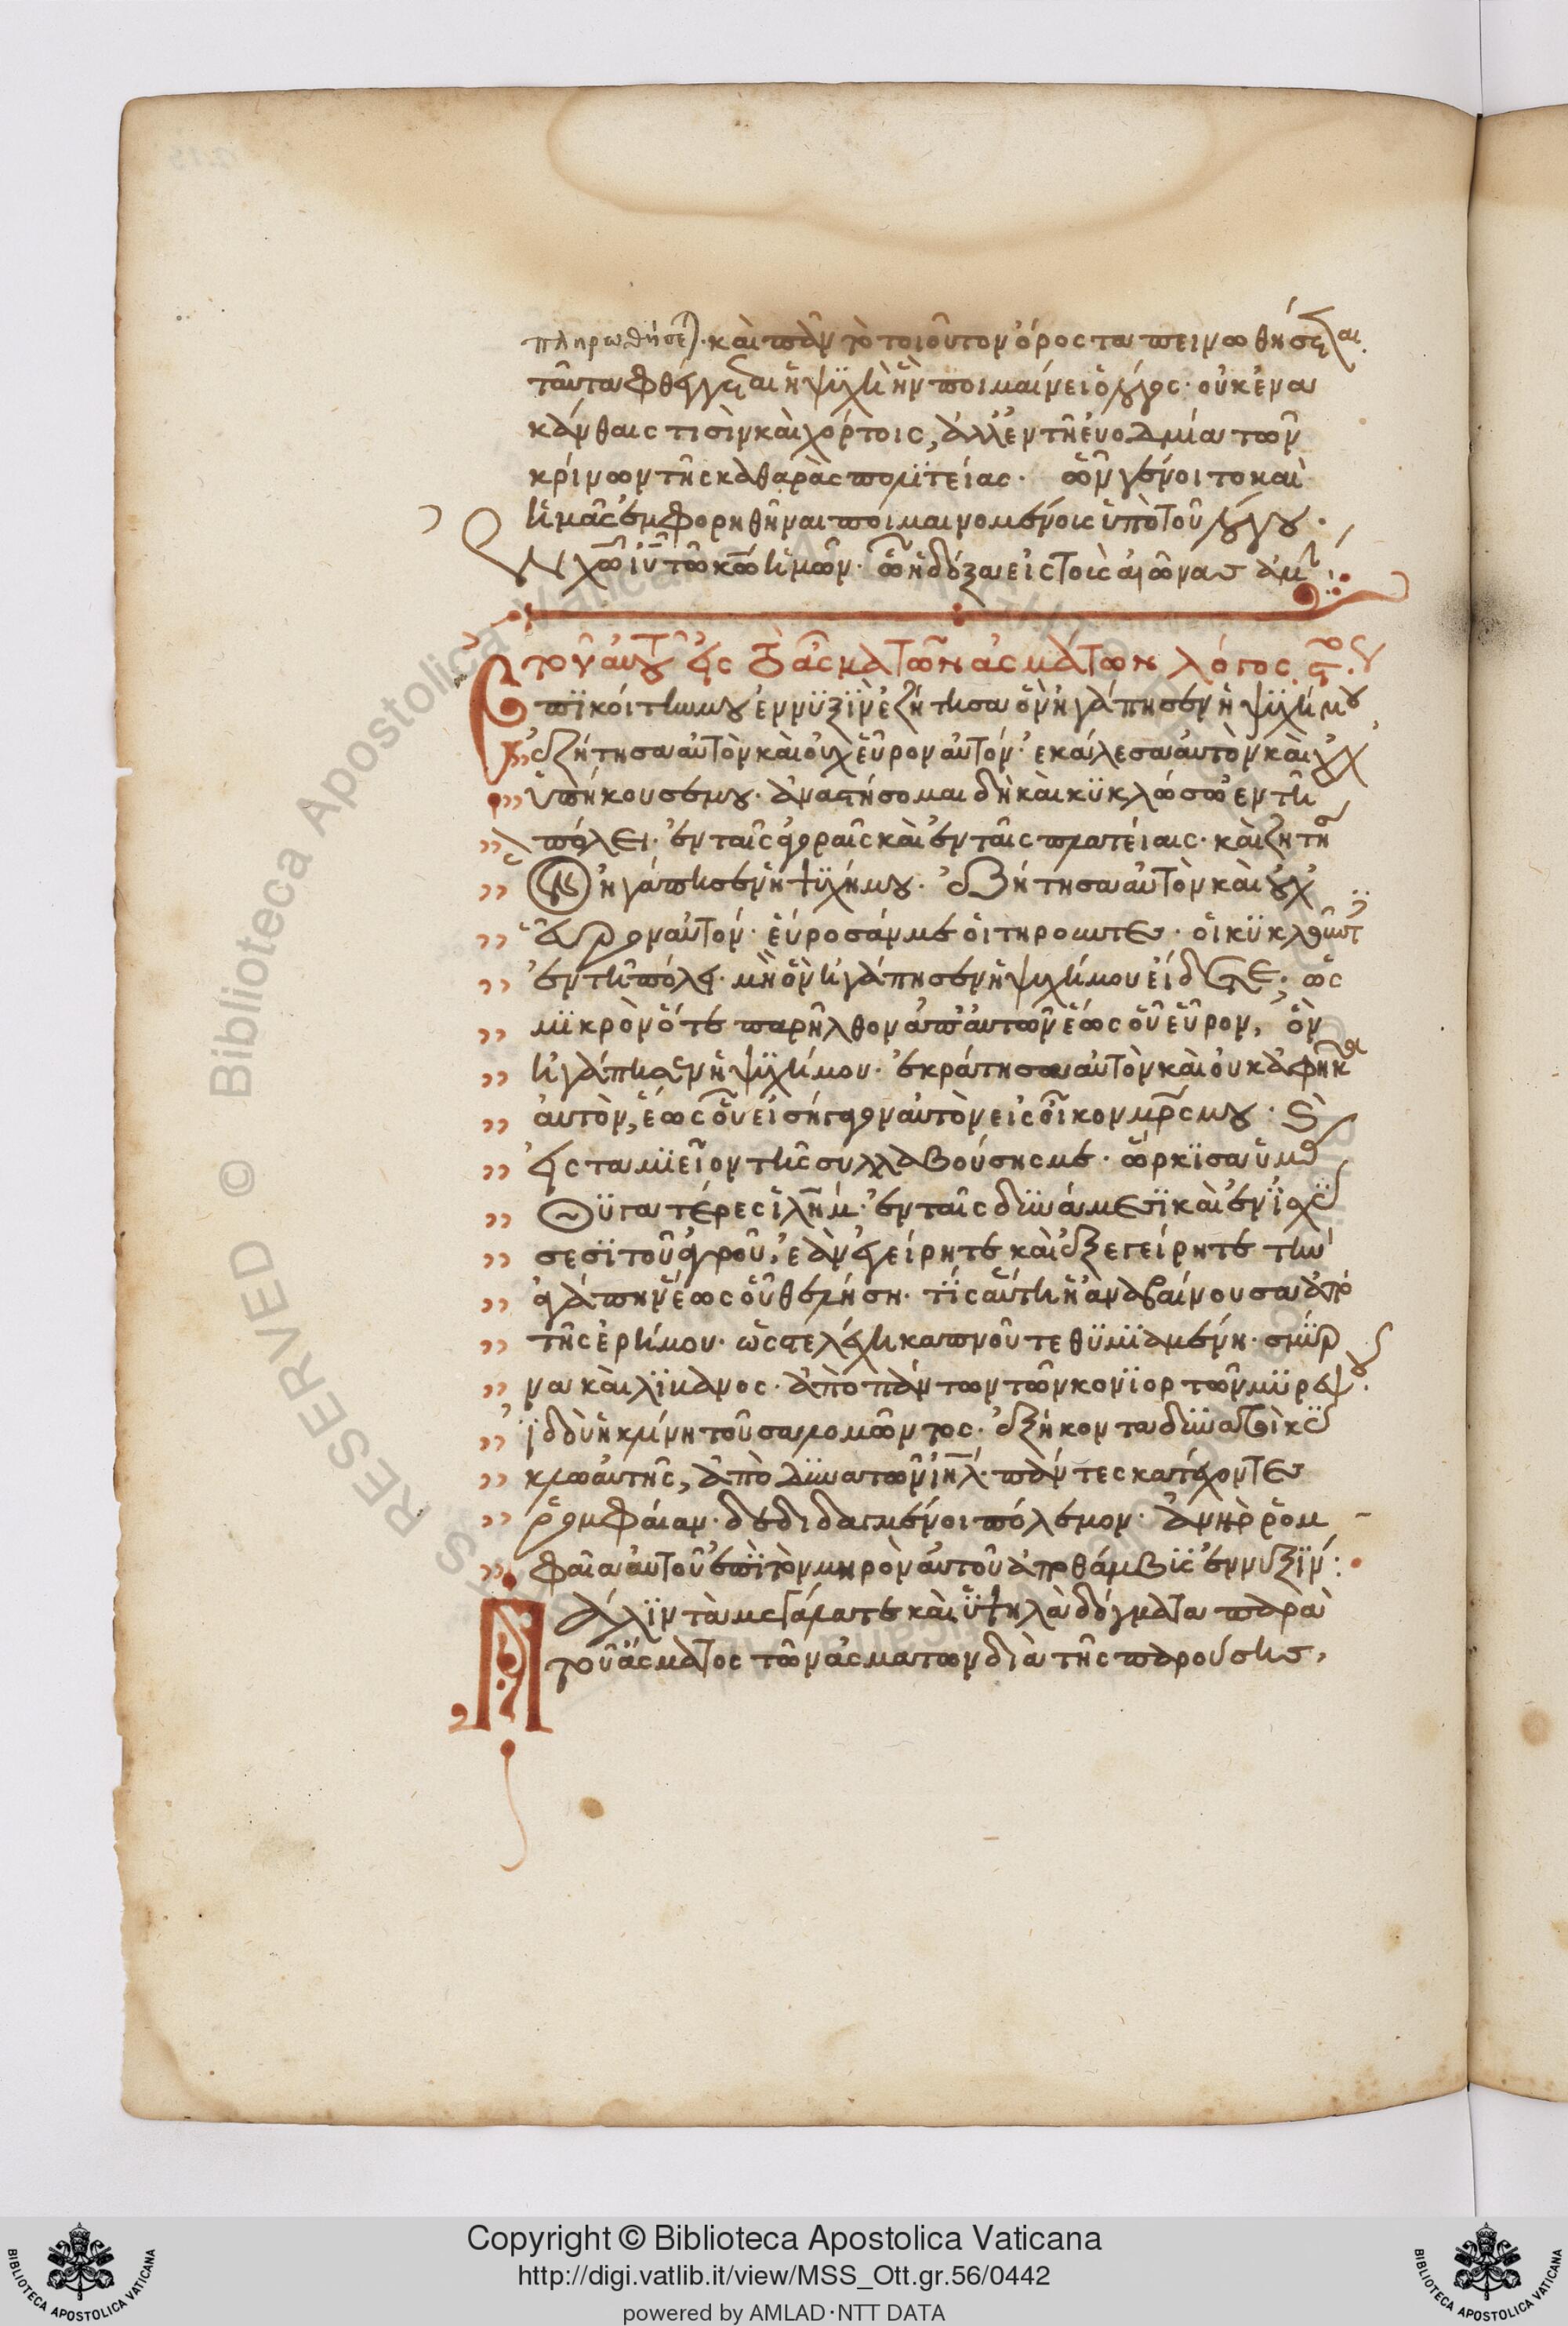 πληρωθήσεται· καὶ πᾶν τὸ τοιοῦτον ὄρος ταπεινωθήσεται.
ταῦτα φθέγγεται ἡ ψυχὴ ἣν ποιμαίνει ὁ λόγος· οὐκ ἐν α
κάνθαις τισὶν καὶ χόρτοις, ἀλλ' ἐν τῆ ευοδμία τῶν
κρίνων τῆς καθαρᾶς πολιτείας· ὧν γένοιτο καὶ
ἡμᾶς ἐμφορηθῆναι ποιμαινομένοις ὑπὸ τοῦ λόγου·
ἐν χω ιυ τω κω ἡμῶν· ὧ ἡ δόξα εἰς τοὺς αἰῶνας ἀμήν:
τοῦ αὐτοῦ εἰς τὸ ᾆσμα τῶν ᾀσμάτων λόγος
Επὶ κοίτην μου ἐν νυξὶν ἐζήτησα ὃν ἠγάπησεν ἡ ψυχή μου
ἐζήτησα αὐτὸν καὶ οὐχ εὗρον αὐτόν· ἐκάλεσα αὐτὸν καὶ οὐχ
ὑπήκουσέ μου· ἀναστήσομαι δὴ καὶ κυκλώσω ἐν τῆ
πόλει· ἐν ταῖς ἀγοραῖς καὶ ἐν ταῖς πλατείαις· καὶ ζητή
σω ὃν ἠγάπησεν ἡ ψυχή μου· ἐζήτησα αὐτὸν καὶ οὐχ
εὗρον αὐτόν· εὕροσάν με οἱ τηροῦντες· οἱ κυκλοῦντες
ἐν τῆ πόλει· μὴ ὃν ἠγάπησεν ἡ ψυχή μου εἴδετε· ὡς
μικρὸν ὅτε παρῆλθον ἀπ' αὐτῶν ἕως οὗ εὗρον, ὃν
ἠγάπησεν ἡ ψυχή μου· ἐκράτησα αὐτὸν καὶ οὐκ ἀφῆκα
αὐτὸν, ἕως οὗ εἰσήγαγον αὐτὸν εἰς οἶκον μρς μου· καὶ
εἰς ταμιεῖον τῆς συλλαβούσης με· ὥρκισα ὑμᾶς
θυγατέρες ιλημ· ἐν ταῖς δυνάμεσι καὶ ἐν ἰσχύ
σεσι τοῦ ἀγροῦ, ἐὰν ἐγείρητε καὶ ἐξεγείρητε τὴν
ἀγάπην ἕως οὗ θελήση· τίς αὕτη ἡ ἀναβαίνουσα ἀπὸ
τῆς ἐρήμου· ὡς στελέχη καπνοῦ τεθυμιαμένη· σμύρ
να καὶ λίβανος· ἀπὸ πάντων τῶν κονιορτῶν μυρεψοῦ·
ἰδοὺ ἡ κλίνη τοῦ σαλομῶντος· ἑξήκοντα δυνατοὶ κύ
κλω αὐτῆς, ἀπὸ δυνατῶν ιηλ· πάντες κατέχοντες
ῥομφαίαν· δεδιδαγμένοι πόλεμον· ἀνὴρ ῥομ
φαία αὐτοῦ ἐπὶ τὸν μηρὸν αὐτοῦ ἀπὸ θάμβους ἐν νυξίν:
Πάλιν τὰ μεγάλα τε καὶ ὑψηλὰ δόγματα παρὰ
τοῦ ἄσματος τῶν ἀσμάτων διὰ τῆς παρούσης,
Copyright © Biblioteca Apostolica Vaticana
http://digi.vatlib.it/view/MSS_Ott.gr.56/0442
powered by AMLAD·NTT DATA